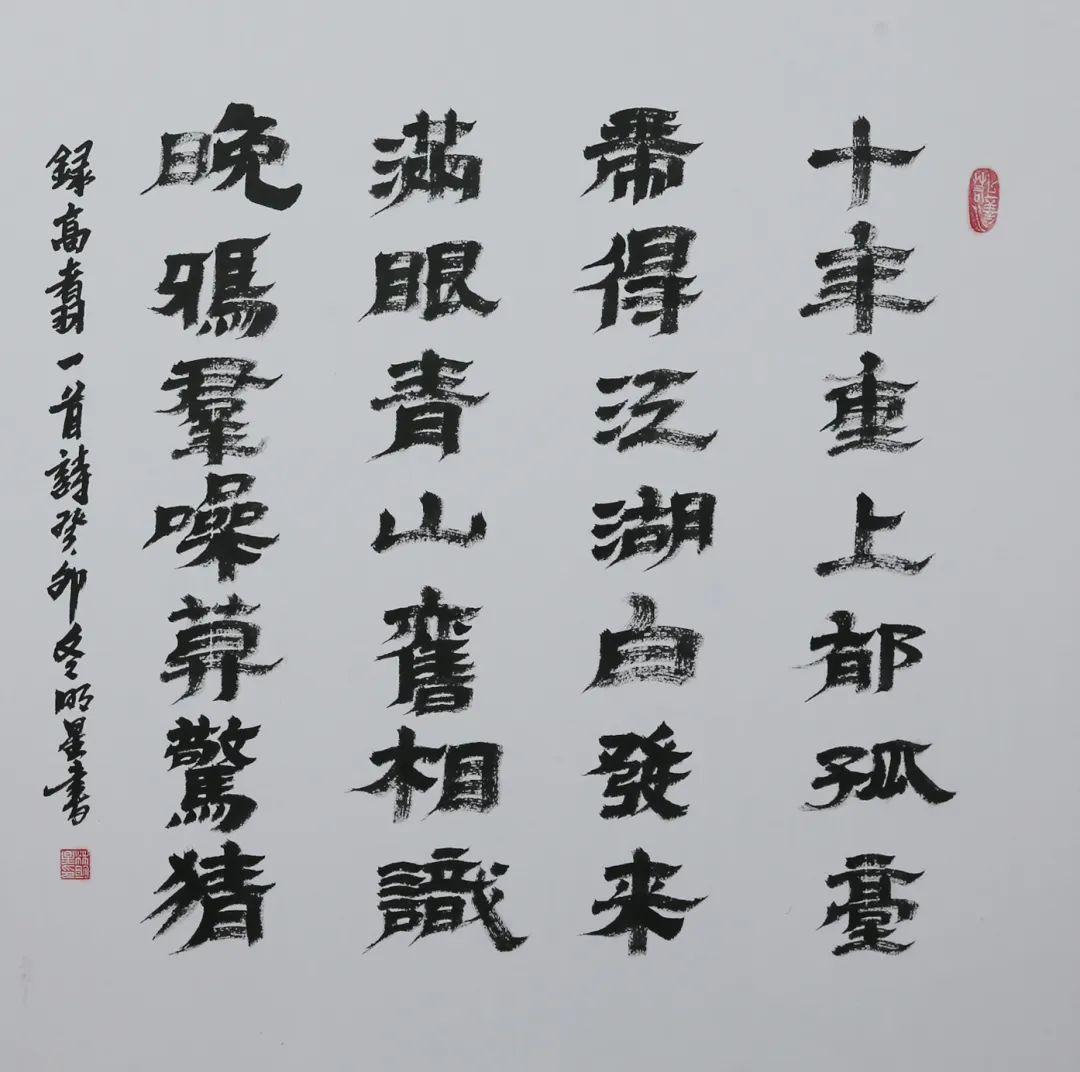 十年重上郁孤臺
帶得江湖白發来
滿眼青山舊相識
晚鴉羣噪莫驚猜
録高翥一首詩癸卯冬明星書